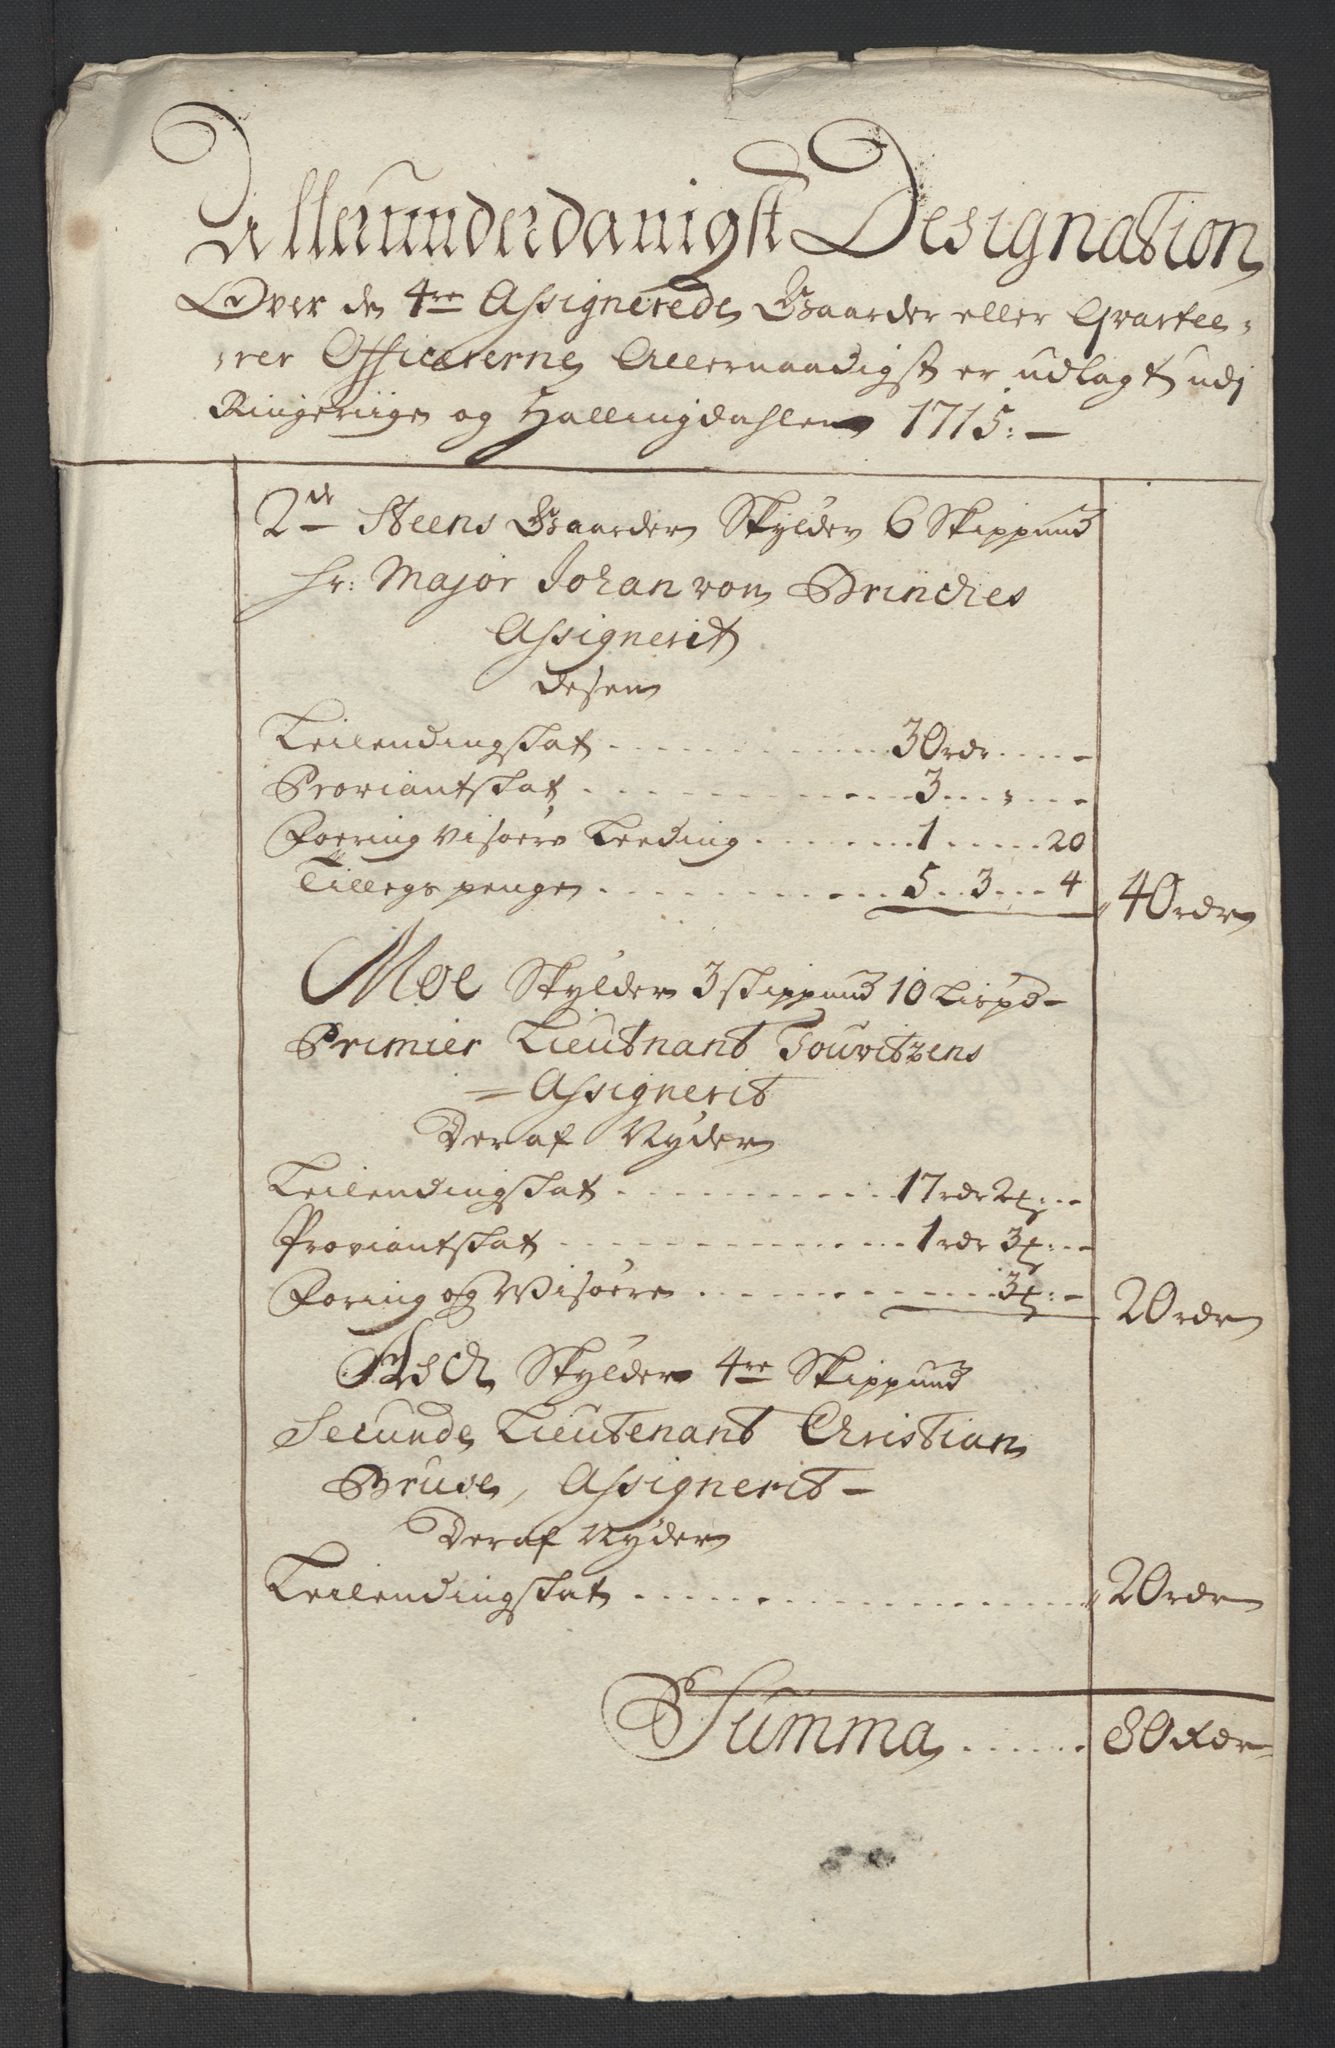 Allerunderdanigst Designation
Over de 4re Assignerede Gaarder eller Qvartee-
-rer Officererne Allernaadigst er udlagt udj
Ringeriige og Hallingdahlen 1715:-
2de Steens Gaarder Skylder 6 Skippund
Hr: Major Johan von Brinches
Assignerit
desen
Leilendingskat 30 rdr
Proviantskat 3
Foering Visøere Leeding 1 20
Tillegs penge 5 3 4 40 rdr
Moe Skylder 3 skippund 10 Lispd-
Primier Lieutnant Touvitzens
Assignerit
Deraf Nyder
Leilendingskat 17 rdr 2
Proviantskat 1 rdr 3
Foring og Visøere 3 20 rdr
Asch Skylder 4re Skippund
Secunde Lieutenant Christian
Bruse, Assignerit-
Deraf Nyder
Leilendingskat 20 rdr
Summa 80 Rdr